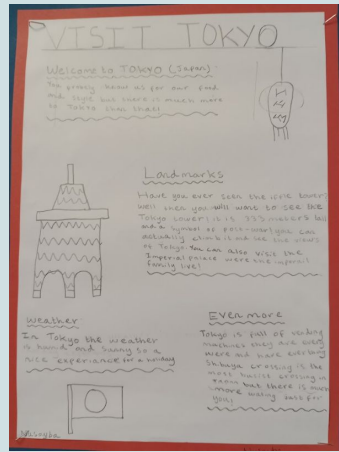 VISIT TOKYO
Welcome to TOKYO (Japan):
You probly know us for our food
and style but there is much more
to Tokyo than that!
Landmarks
Have you ever seen the tower?
Well then you will want to see the
Tokyo tower! it is 333 meters tall
and a symbol of post-war! you can
actually climb it and see the views
of Tokyo. You can also visit the
Imperial palace were the imperial
family live!
Weather
In Tokyo the weather
is humid and sunny so a
nice experience for a holiday
Even more
Tokyo is full of vending
machines they are every
were and have everything
Shibuya crossing is the
most busiest crossing in
but there is
more waiting here for
you!